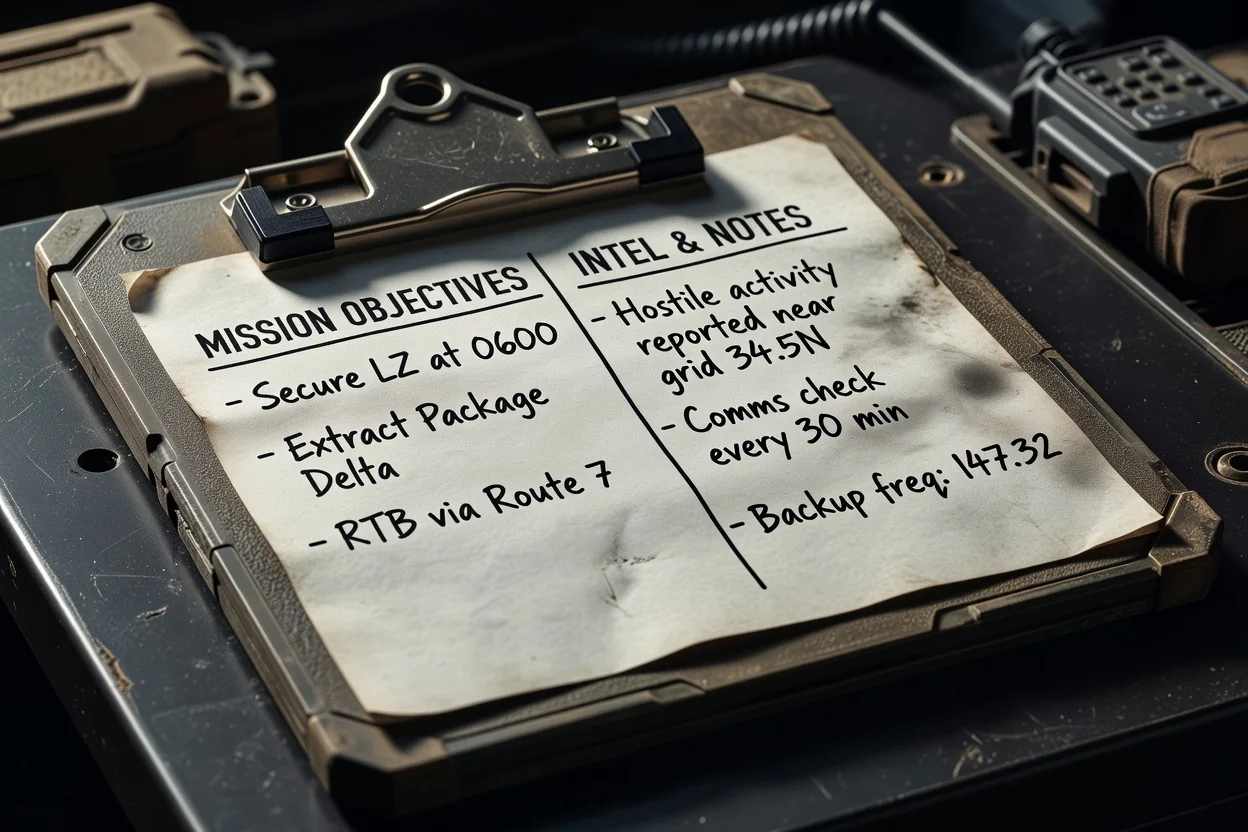 MISSION OBJECTIVES
- Secure LZ at 0600
- Extract Package
Delta
- RTB via Route 7
INTEL & NOTES
- Hostile activity
reported near
grid 34.5N
- Comms check
every 30 min
- Backup freq: 147.32